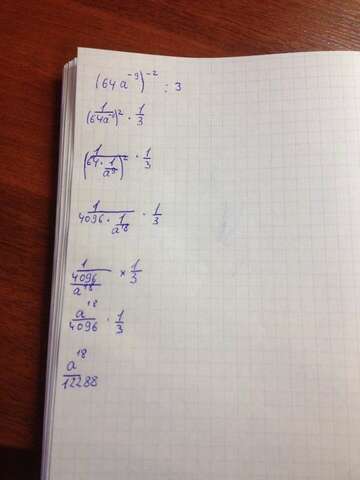 (64a⁻⁹)⁻² : 3
(1/64a⁻⁹)² · 1/3
(1/(64 · 1/a⁹))² · 1/3
1/(4096 · 1/a¹⁸) · 1/3
1/(4096/a¹⁸) × 1/3
a¹⁸/4096 · 1/3
a¹⁸/12288